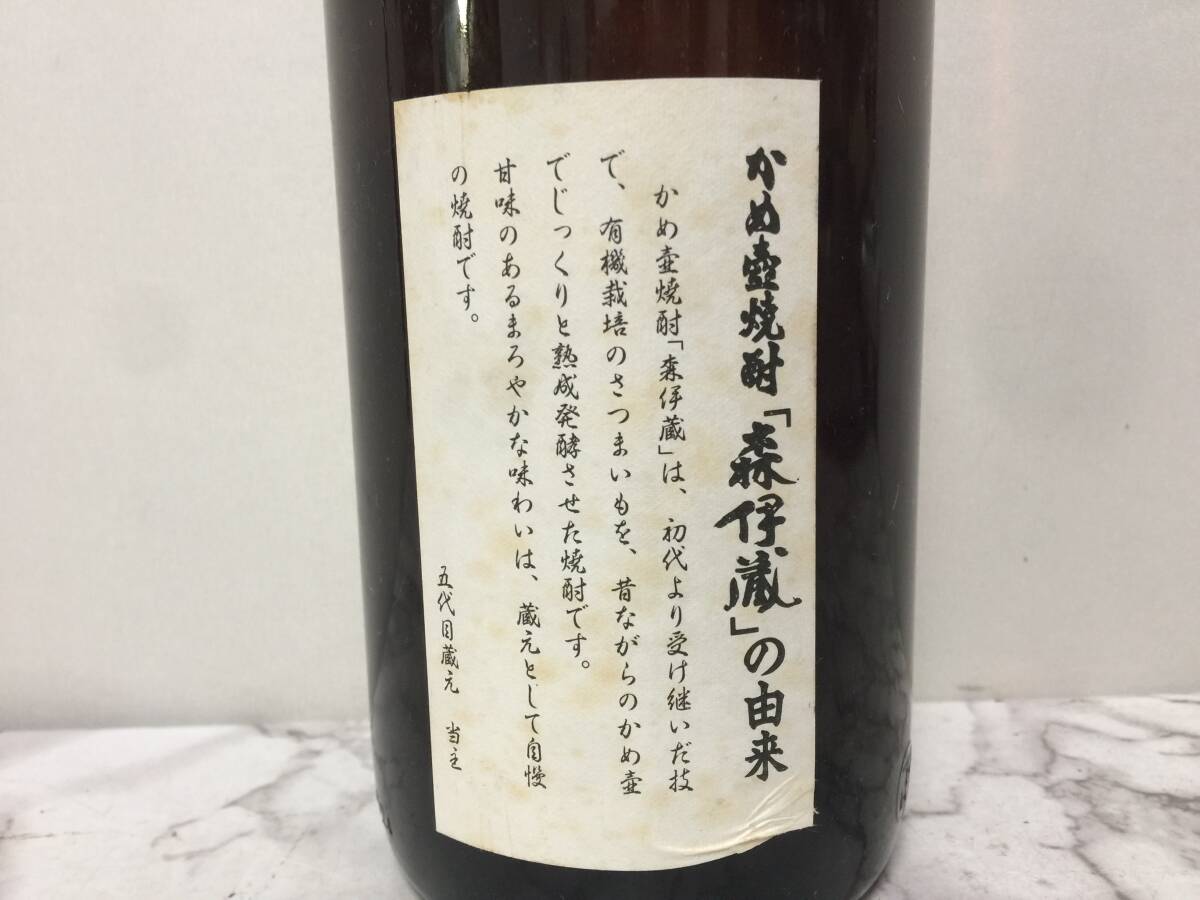 かめ壺焼酎「森伊蔵」の由来
かめ壺焼酎「森伊蔵」は、初代より受け継いだ技
で、有機栽培のさつまいもを、昔ながらのかめ壺
でじっくりと熟成発酵させた焼酎です。
甘味のあるまろやかな味わいは、蔵元として自慢
の焼酎です。
五代目蔵元　当主